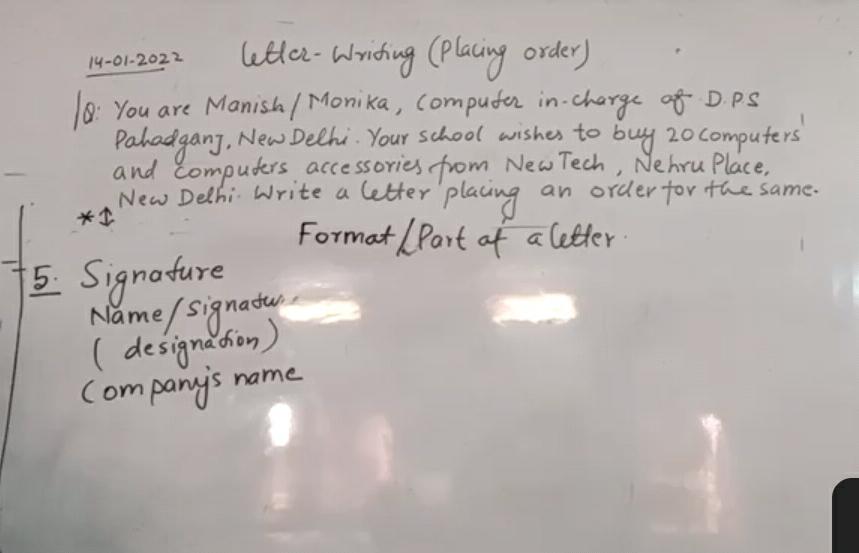 14-01-2022 Letter-Writing (Placing order)
Q: You are Manish/Monika, Computer in-charge of D.P.S
Pahadganj, New Delhi. Your school wishes to buy 20 computers
and computers accessories from New Tech, Nehru Place,
New Delhi. Write a letter placing an order for the same.
Format/Part of a letter.
5. Signature
Name/Signatu..
( designation)
Company's name